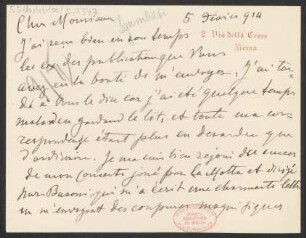 Cher Monsieur
5 Février 914
2 Via della Croce
Roma
J'ai reçu bien en son temps
les ex des publications que vous
avez eu la bonté de m'envoyer, j'ai tar-
dé à vous le dire car j'ai été quelque temps
malade en gardant le lit, et toute ma cor
respondance étant plus en désordre que
d'ordinaire. Je me suis bien réjoui du succès
de mon Concerto joué par da Motta et dirigé
par Busoni qui m'a écrit une charmante lettre
en m'envoyant des coupures magnifiques